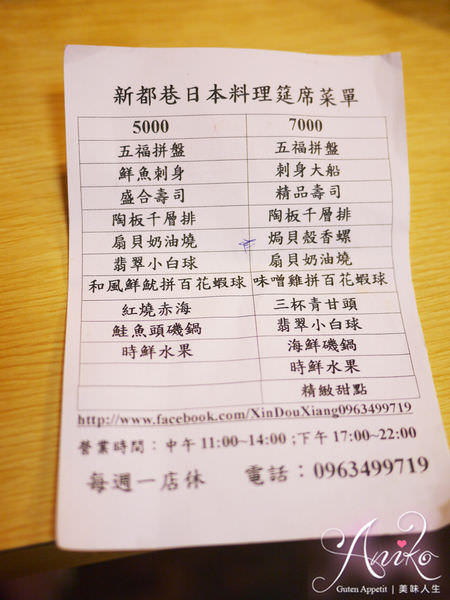 新都巷日本料理筵席菜單
5000 7000
五福拼盤 五福拼盤
鮮魚刺身 刺身大船
盛合壽司 精品壽司
陶板千層排 陶板千層排
扇貝奶油燒 焗貝殼香螺
翡翠小白球 扇貝奶油燒
和風鮮魷拼百花蝦球 味噌雞拼百花蝦球
紅燒赤海 三杯青甘頭
鮭魚頭磯鍋 翡翠小白球
時鮮水果 海鮮磯鍋
時鮮水果
精緻甜點
http://www.facebook.com/XinDouXiang0963499719
營業時間：中午11:00~14:00；下午17:00~22:00
每週一店休 電話：0963499719
Aniko
Guten Appetit | 美味人生